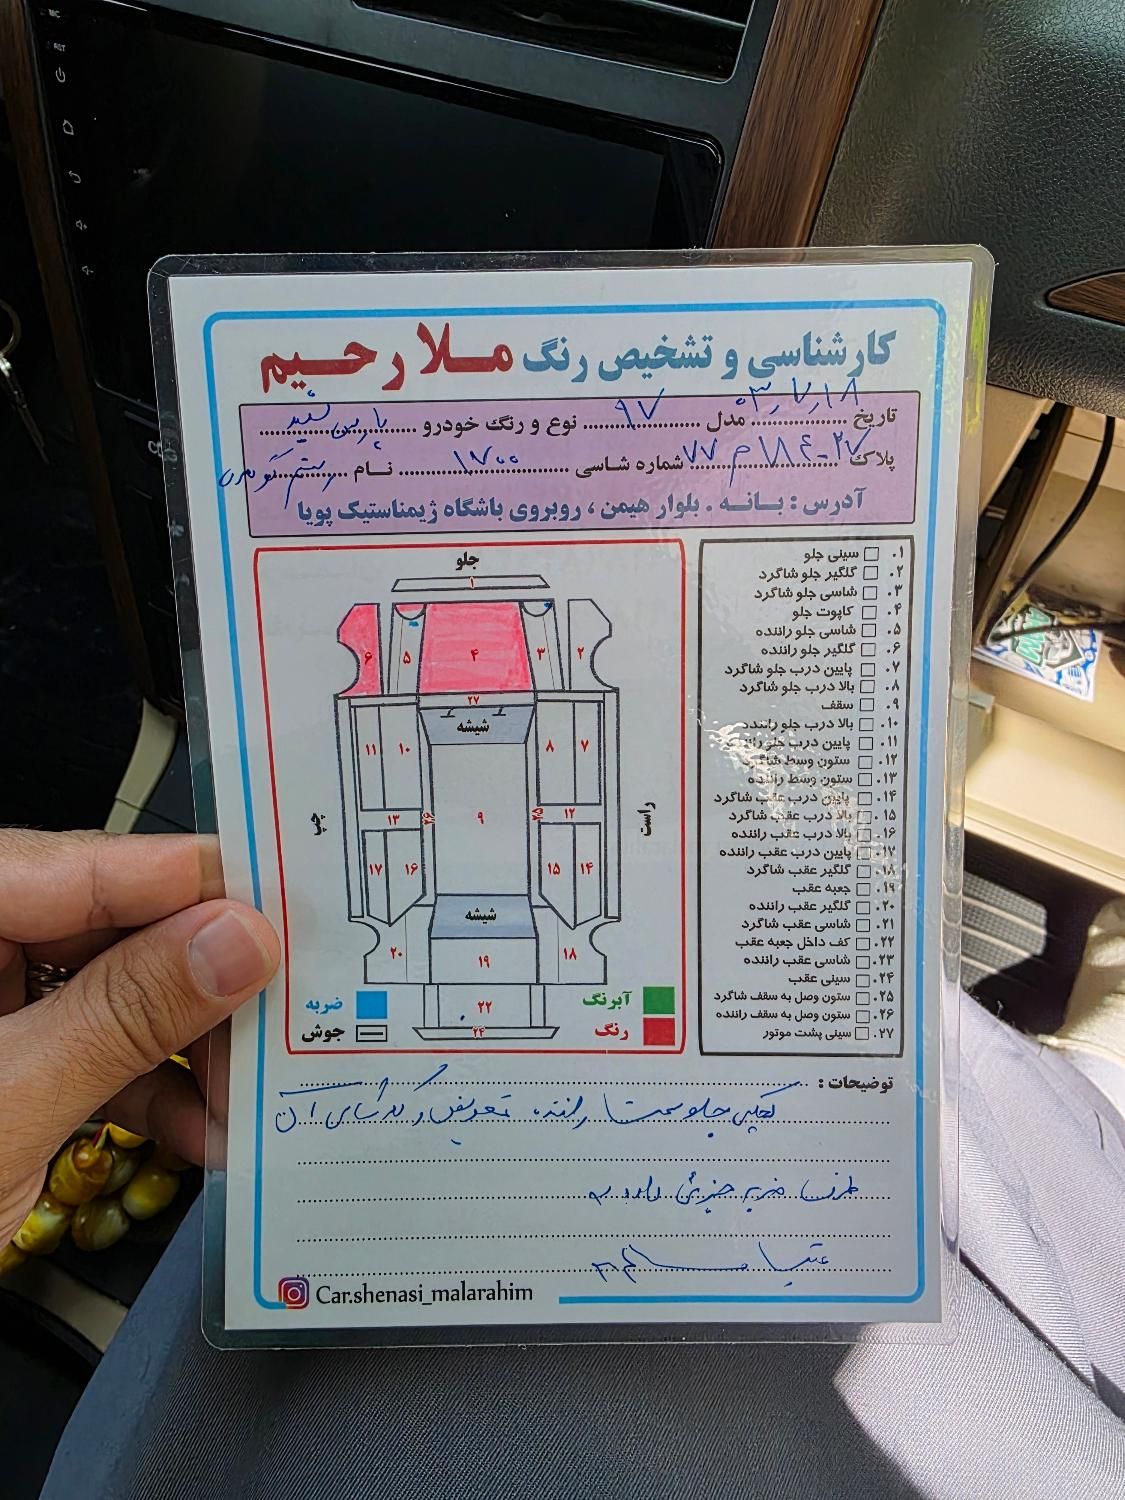 کارشناسی و تشخیص رنگ مـلا رحـیم
تاریخ ۰۳,۷,۱۸ مدل ۹۷ نوع و رنگ خودرو پارس سفید
پلاک ۲۷-۱۸۶ م ۷۷ شماره شاسی ۱۷۰۰ نـام رستم
آدرس : بـانـه . بلوار هیمن ، روبروی باشگاه ژیمناستیک پویا
جلو
۱
۶
۵
۴
۳
۲
۲۷
شیشه
۱۱
۱۰
۸
۷
چپ
۱۳
۲۶
۹
۲۵
۱۲
راست
۱۷
۱۶
۱۵
۱۴
شیشه
۲۰
۱۹
۱۸
۲۲
۲۴
ضربه
جوش
آبرنگ
رنگ
۱. سینی جلو
۲. گلگیر جلو شاگرد
۳. شاسی جلو شاگرد
۴. کاپوت جلو
۵. شاسی جلو راننده
۶. گلگیر جلو راننده
۷. پایین درب جلو شاگرد
۸. بالا درب جلو شاگرد
۹. سقف
۱۰. بالا درب جلو راننده
۱۱. پایین درب جلو راننده
۱۲. ستون وسط شاگرد
۱۳. ستون وسط راننده
۱۴. پایین درب عقب شاگرد
۱۵. بالا درب عقب شاگرد
۱۶. بالا درب عقب راننده
۱۷. پایین درب عقب راننده
۱۸. گلگیر عقب شاگرد
۱۹. جعبه عقب
۲۰. گلگیر عقب راننده
۲۱. شاسی عقب شاگرد
۲۲. کف داخل جعبه عقب
۲۳. شاسی عقب راننده
۲۴. سینی عقب
۲۵. ستون وصل به سقف شاگرد
۲۶. ستون وصل به سقف راننده
۲۷. سینی پشت موتور
توضیحات :
گلگیر جلو سمت راننده تعویض و سر شاسی آن
طرف ضربه جزئی دارد
عقب سالم
Car.shenasi_malarahim